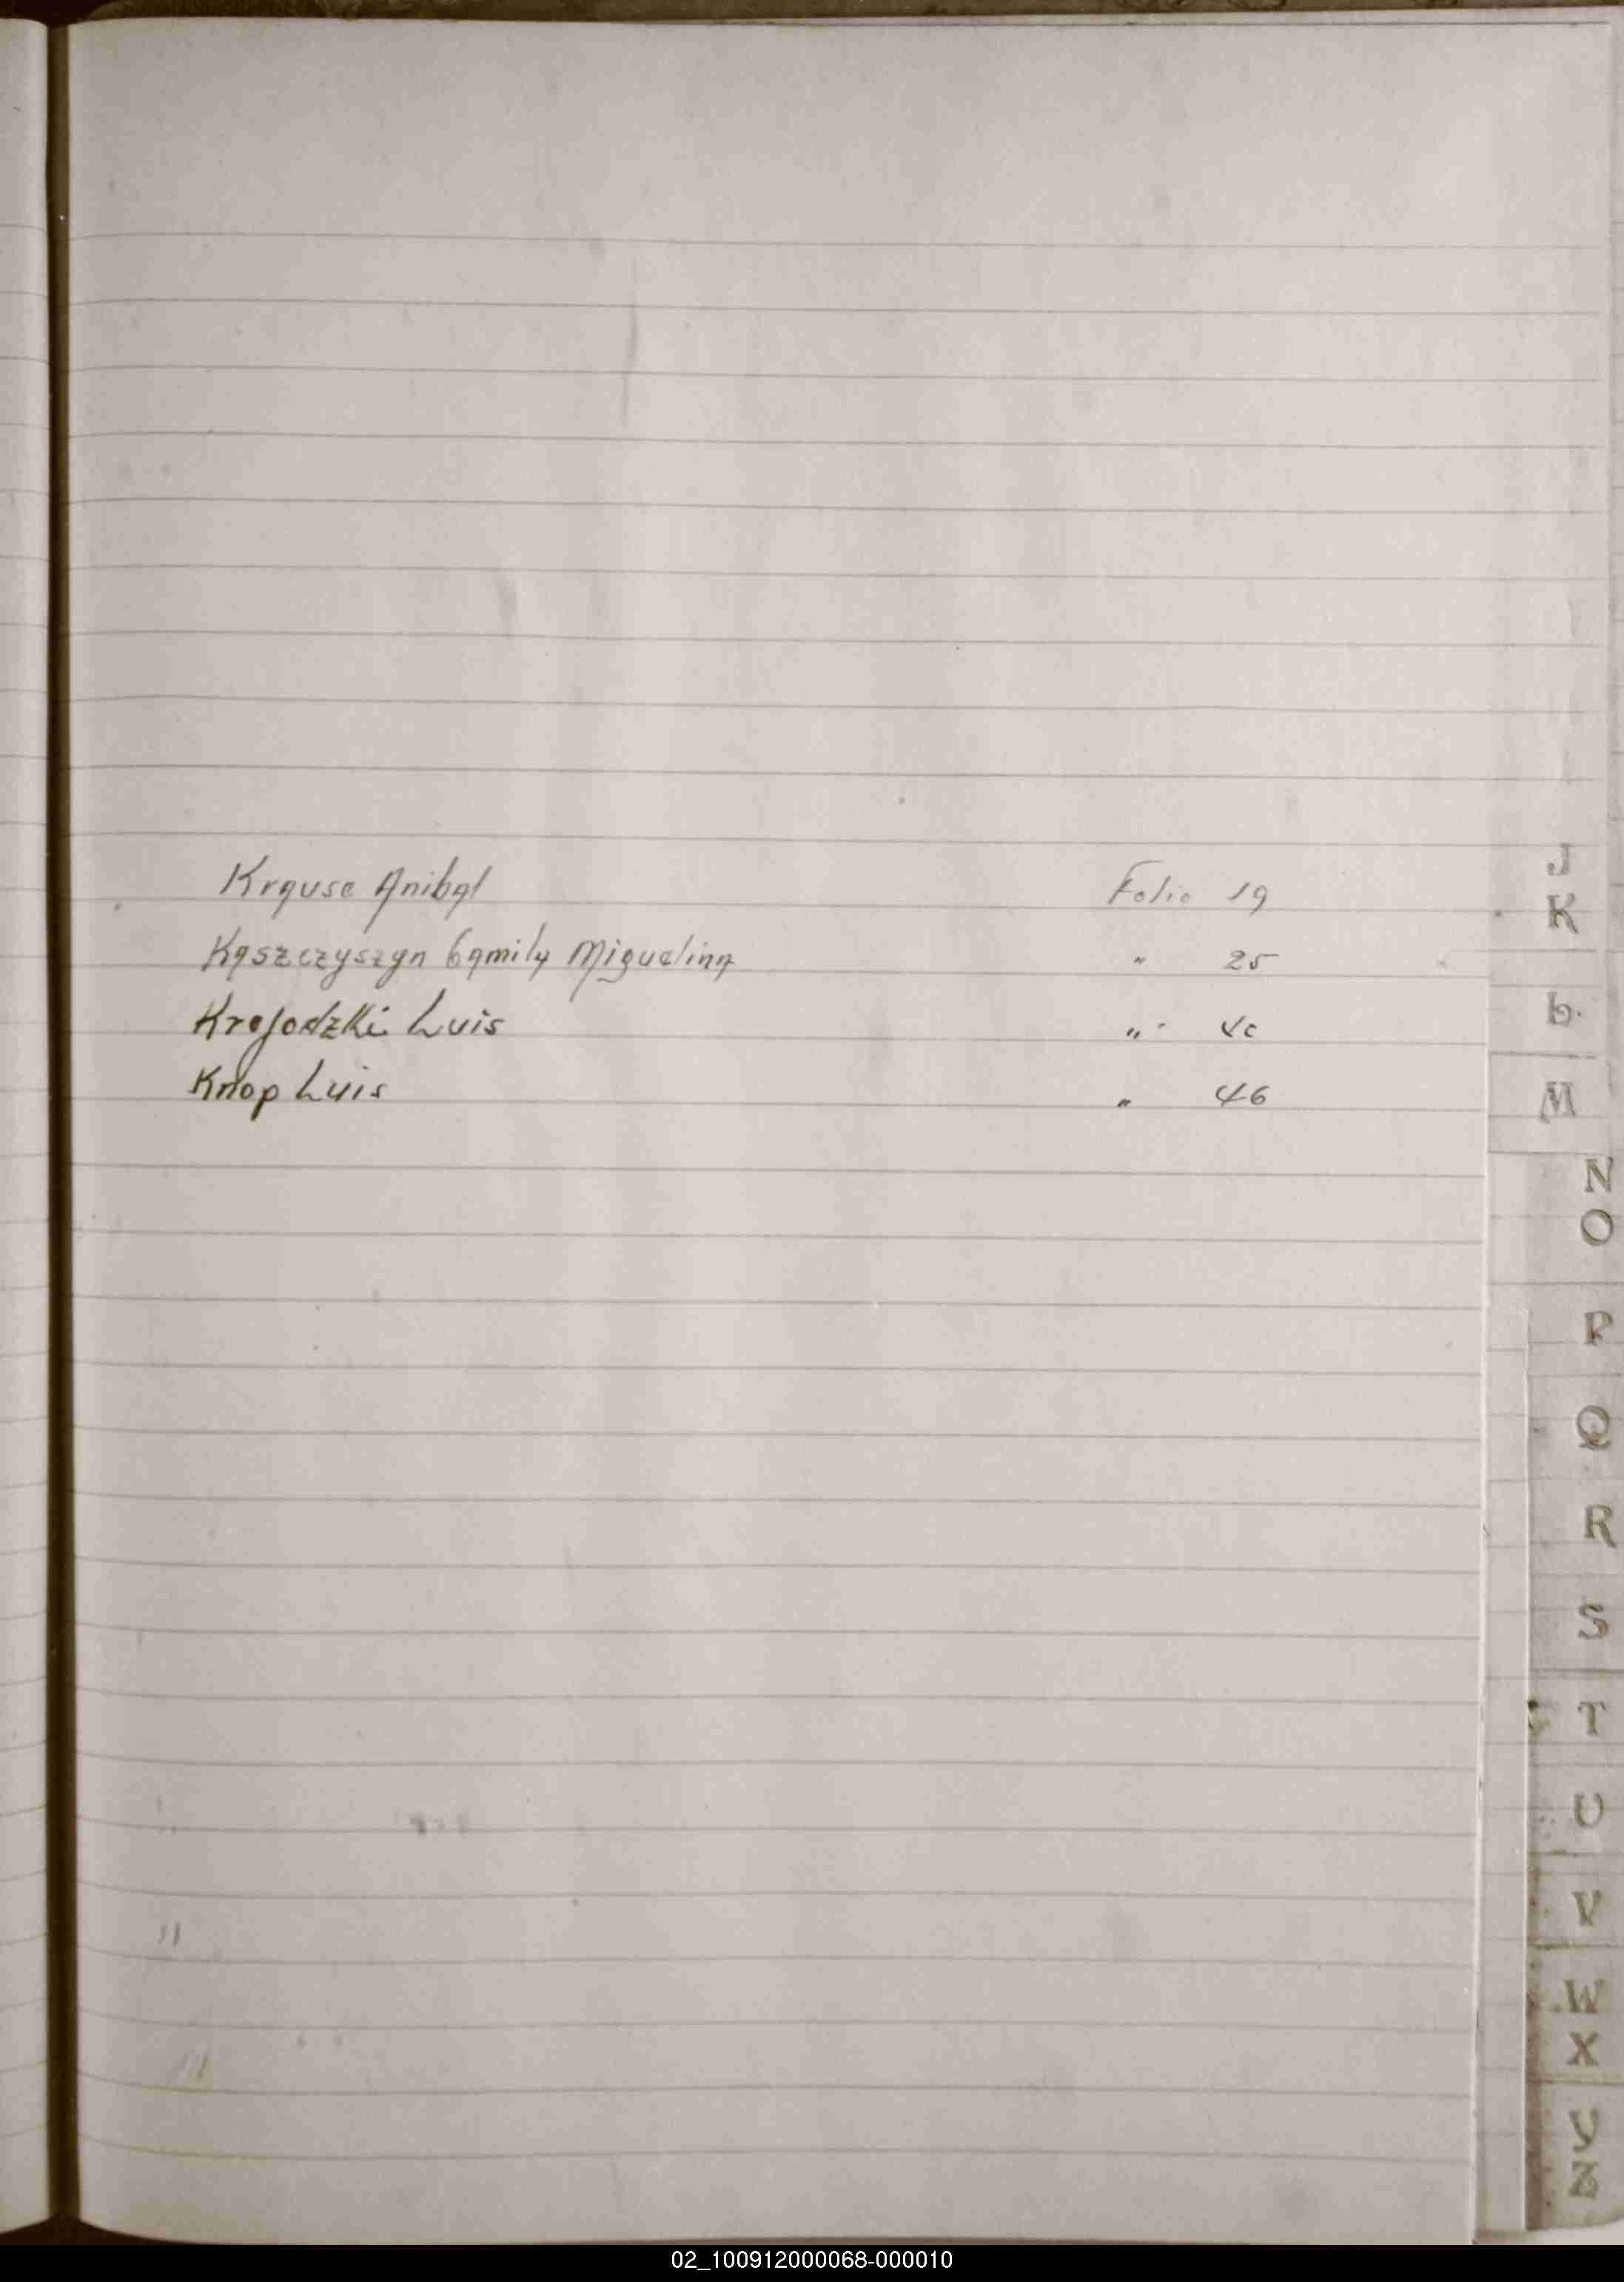 Krause Anibal Folio 19
Kaszczyszyn Camila Miguelina " 25
Luis "
Knop Luis " 46
J
K
L
M
N
O
P
Q
R
S
T
U
V
W
X
Y
Z
02_100912000068-000010